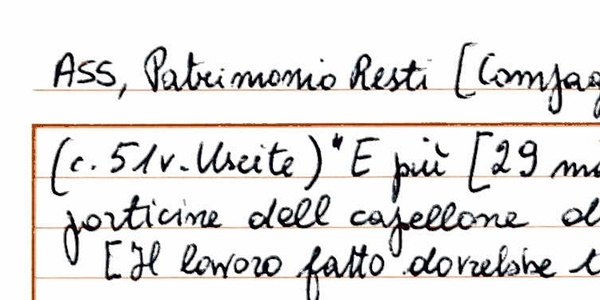 ASS, Patrimonio Resti [Compag
(c. 51v. Uscite) "E più [29 m
porticine dell capellone d
[Il lavoro fatto dovrebbe t